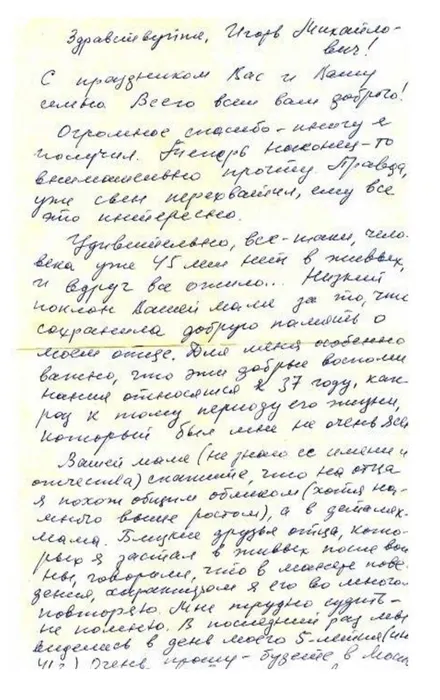 Здравствуйте, Игорь Михайло-
вич!
С праздником Вас и Вашу
семью. Всего всем вам доброго!
Огромное спасибо – книгу я
получил. Теперь наконец-то
внимательно прочту. Правда,
уже сын перехватил, ему всё
это интересно.
Удивительно, все-таки, чело-
века уже 45 лет нет в живых,
и вдруг все ожило... Низкий
поклон Вашей маме за то, что
сохранила добрую память о
моем отце. Для меня особенно
важно, что эти добрые воспоми
нания относятся к 37 году, как
раз к тому периоду его жизни,
который был мне не очень
Вашей маме (не знаю ее имени и
отчества) скажите, что на отца
я похож общим обликом (хотя на-
много выше ростом), а в деталях-
мама. Близкие друзья отца, кото-
рых я застал в живых после вой
ны, говорили, что в манере пове
дения, характером я его во много
повторяю. Мне трудно судить-
не помню. В последний раз мы
виделись в день моего 5-летия
41г.) Очень прошу – будете в